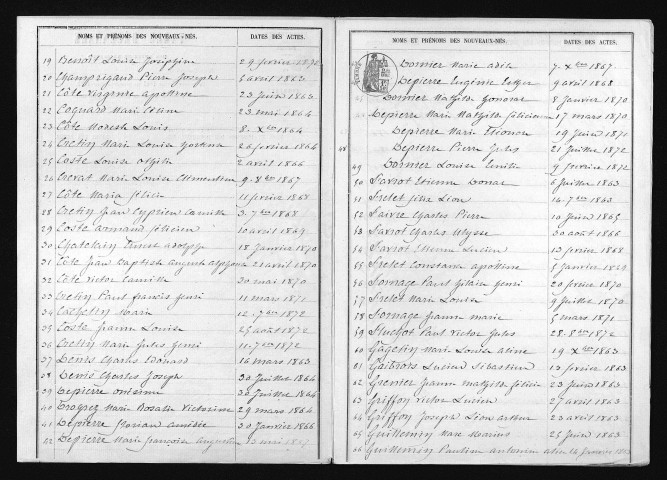 NOMS ET PRÉNOMS DES NOUVEAUX-NÉS. DATES DES ACTES.
19 Benoit Louise Joséphine 29 février 1872
20 Champrigand Pierre Joseph 5 avril 1863
21 Côte Virginie apolline 23 Juin 1863
22 Cognard Marie 23 mai 1864
23 Côte Modeste Louis 8 Xbre 1864
24 Cretin Marie Louise 26 février 1864
25 Coste Louise 2 avril 1866
26 Crevat Marie Louise Clémentine 9 Xbre 1867
27 Côte Maria félicie 11 février 1868
28 Cretin Jean Cyprien Camille 3 7bre 1868
29 Coste armand félicien 10 avril 1869
30 Chatelain adolphe 18 Janvier 1870
31 Côte Jean Baptiste auguste alphonse 21 avril 1870
32 Côte Victor Camille 30 mai 1870
33 Cretin Paul francis henri 11 mars 1871
34 Marie 12 7bre 1872
35 Coste Jeanne Louise 25 août 1872
36 Cretin Marie Jules henri 11 7bre 1872
37 Denis Charles Edouard 16 mars 1863
38 Denis Charles Joseph 30 Juillet 1864
39 Depierre onésime 30 Juillet 1864
40 Marie Rosalie Victorine 29 mars 1864
41 Depierre florian amédée 30 Janvier 1866
42 Depierre Marie françoise augustine
NOMS ET PRÉNOMS DES NOUVEAUX-NÉS. DATES DES ACTES.
Dornier Marie adèle 7 Xbre 1867
Depierre Eugénie 9 avril 1868
Dornier Mathilde 8 Janvier 1870
Depierre Marie Mathilde félicienne 17 mars 1870
Depierre Marie Eléonore 19 Juin 1870
48 Depierre Pierre Jules 21 Juillet 1872
49 Dornier Louise Emilie 9 février 1872
50 Favrot Etienne Donat 6 Juillet 1863
51 Fretet félix Léon 14 7bre 1863
52 Faivre Charles Pierre 10 Juin 1865
53 Favrot Charles Ulysse 30 août 1866
54 Favrot Etienne Lucien 13 février 1868
55 Fretet Constance apolline 5 Janvier 1869
56 Fornage Paul hilaire henri 20 février 1870
57 Fretet Marie Louise 9 Juillet 1870
58 Fornage Jeanne marie 5 mars 1871
59 Paul Victor Jules 28 8bre 1872
60 Marie Louise aline 19 Xbre 1863
61 Lucien Sébastien 13 février 1863
62 Grenier Jeanne Mathilde félicie 23 Juin 1863
63 Griffon Victor Lucien 27 avril 1863
64 Griffon Joseph Léon arthur 23 avril 1863
65 Guillemin Marc Marius 25 Juin 1863
66 Guillemin Pauline antonine